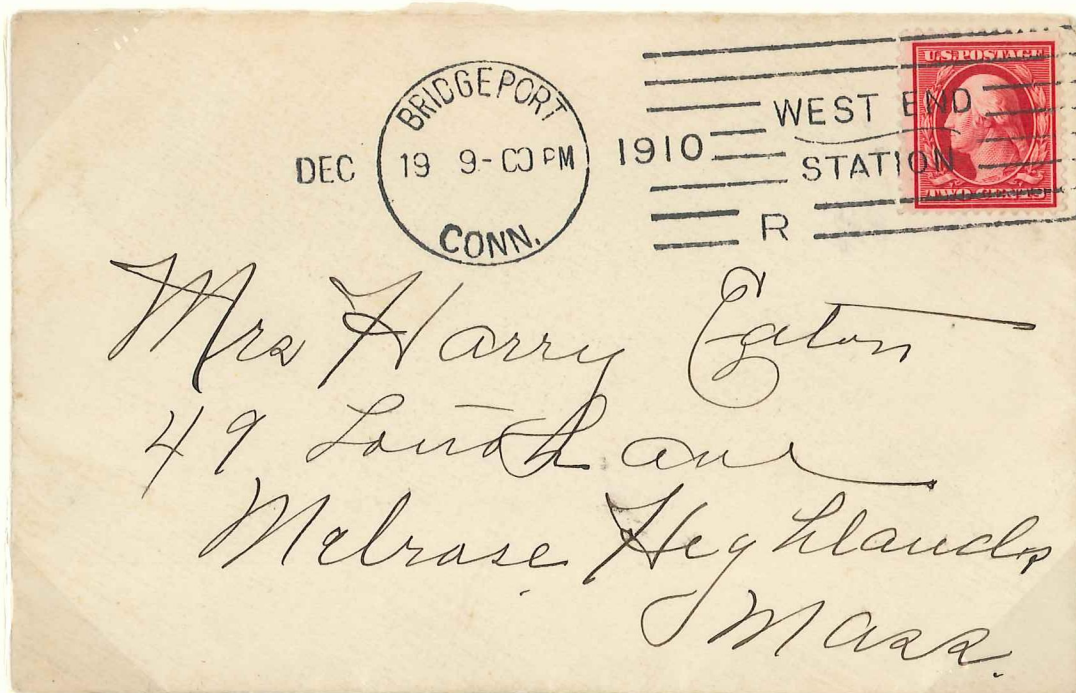 BRIDGEPORT
DEC 19 9-00 PM 1910
CONN.
WEST END
STATION
R
U.S. POSTAGE
TWO CENTS
Mrs Harry Eaton
49 South ave
Melrose Highlands
Mass.